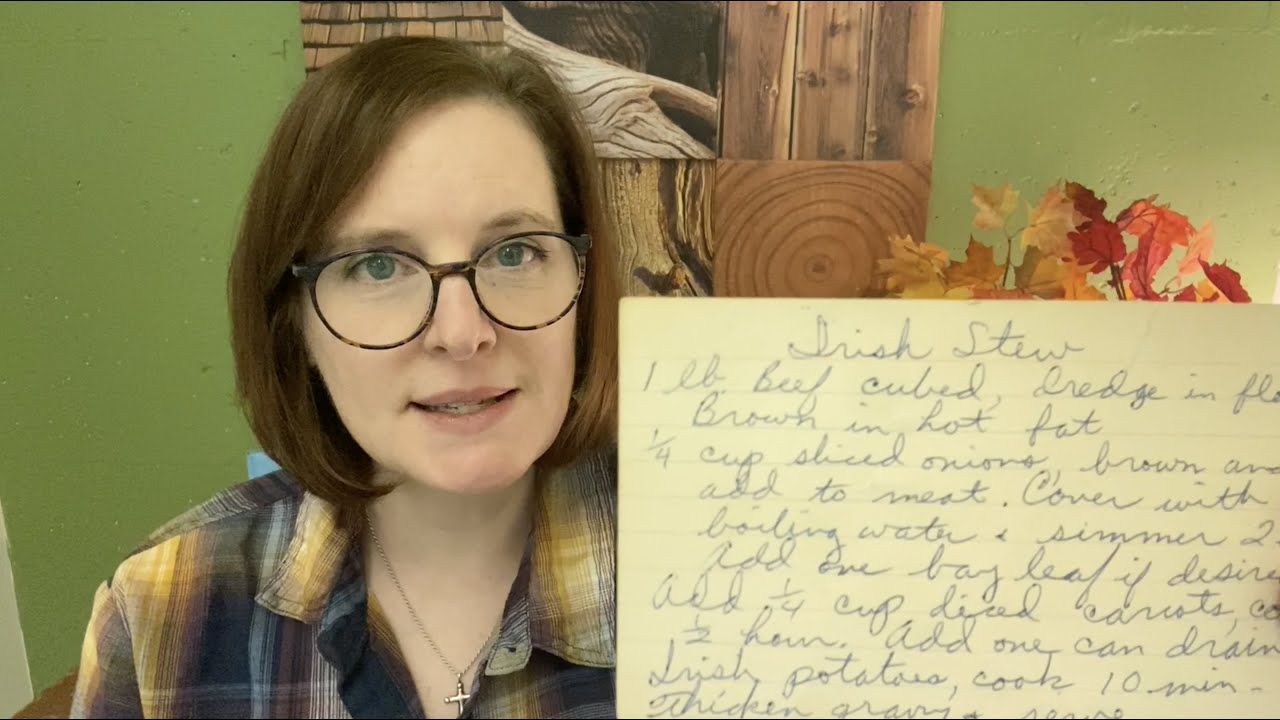 Irish Stew
1 lb. Beef cubed, dredge in flo
Brown in hot fat
1/4 cup sliced onions, brown and
add to meat. Cover with
boiling water & simmer 2
Add one bay leaf if desire
Add 1/4 cup diced carrots, co
1/2 hour. Add one can drain
Irish potatoes, cook 10 min-
Thicken gravy & serve